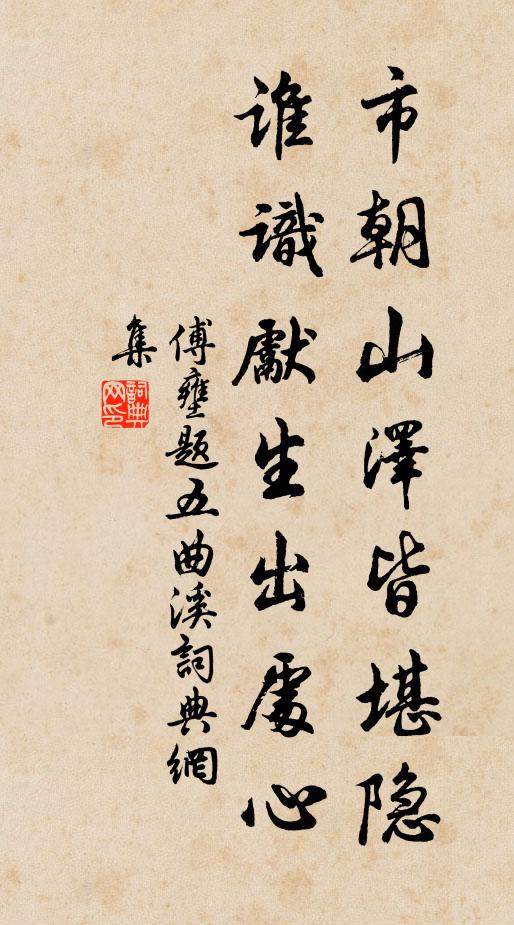 市朝山澤皆堪隐
谁識獻生出處心
傅壅题五曲溪詞典網
集
詞典网印